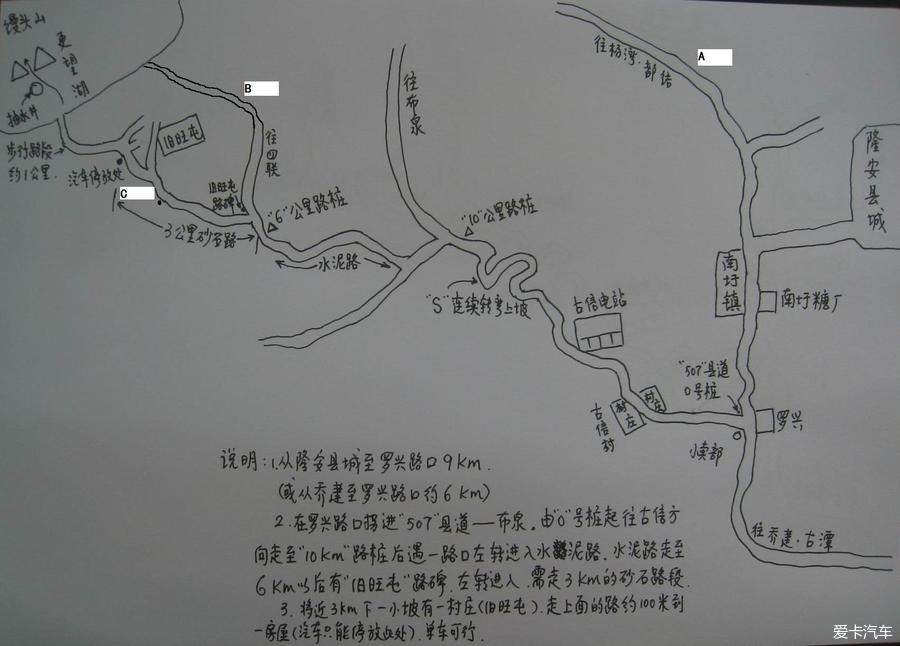 馒头山
更望湖
抽水井
步行路段
约1公里.
汽车停放处
旧旺屯
B
往四联
旧旺屯
路碑
C
3公里砂石路
"6"公里路桩
水泥路
往布泉
"10"公里路桩
"S"连续转弯上坡
往杨湾·都结
A
隆安县城
南圩镇
南圩糖厂
古信电站
"507"县道
0号桩
村庄
村庄
古信村
小卖部
罗兴
往乔建·古潭
说明:1.从隆安县城至罗兴路口9Km.
(或从乔建至罗兴路口约6Km)
2.在罗兴路口拐进"507"县道——布泉。由"0"号桩起往古信方
向走至"10Km"路桩后遇一路口左转进入水泥路.水泥路走至
6Km以后有"旧旺屯"路碑.左转进入.需走3Km的砂石路段.
3.将近3Km下一小坡有一村庄(旧旺屯).走上面的路约100米到
一房屋(汽车只能停放此处).单车可行.
爱卡汽车